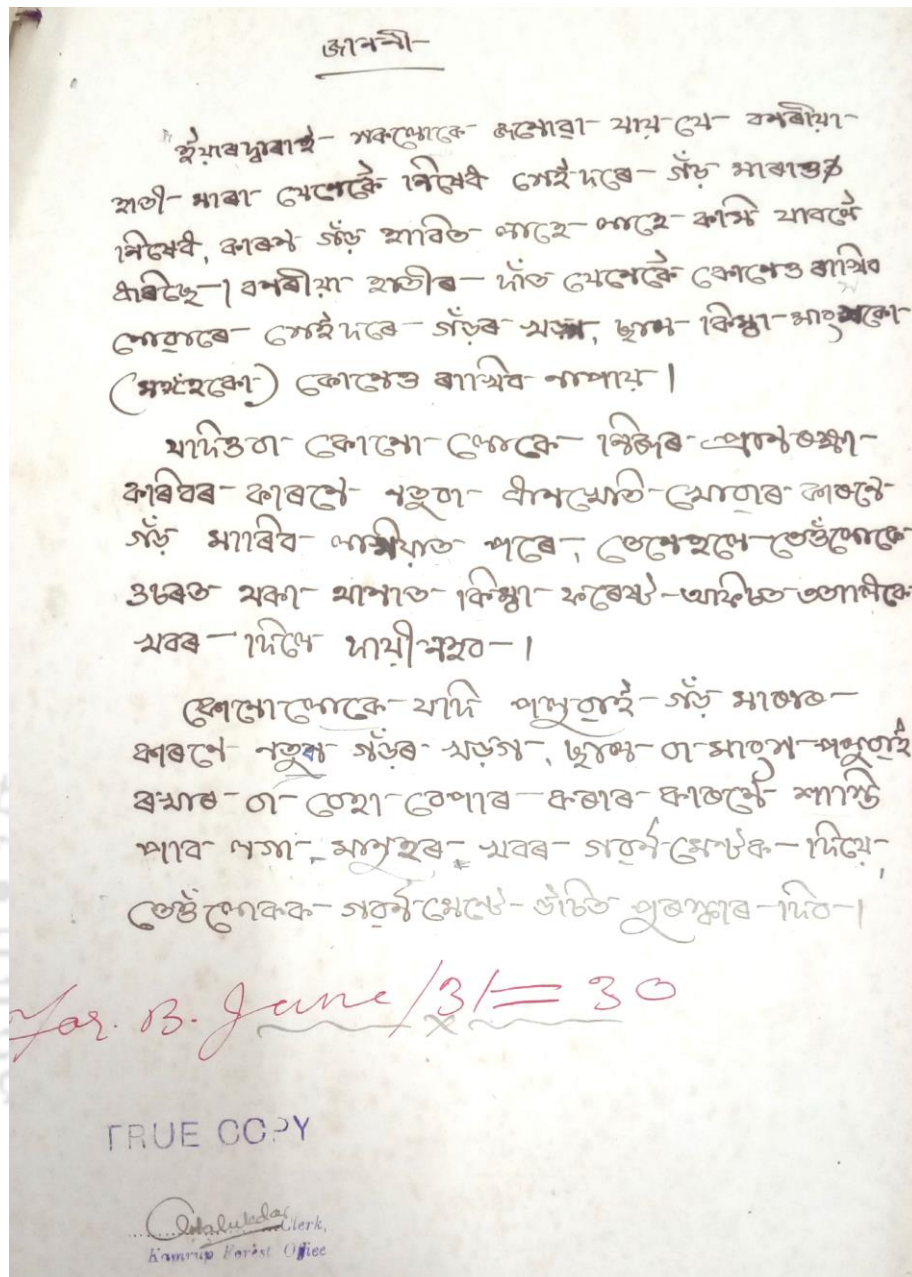 জাননী-
ইয়াৰদ্বাৰাই- সকলোকে জনোৱা যায় যে বনৰীয়া-
হাতী- মাৰা যেনেকৈ নিষেধ সেইদৰে- গঁড় মাৰাও
নিষেধ, কাৰণ গঁড় হাবিত লাহে- লাহে- কমি যাবলৈ
ধৰিছে। বনৰীয়া হাতীৰ- দাঁত যেনেকৈ কোনেও ৰাখিব
নোৱাৰে- সেইদৰে- গঁড়ৰ খড়্গ, ছাল- কিম্বা- মাংসকো
(মঙহকো) কোনেও ৰাখিব নাপায়।
যদিওবা- কোনো- লোকে- নিজৰ- প্ৰাণৰক্ষা-
কৰিবৰ- কাৰণে- নতুবা- খেতি- খোৱাৰ কাৰণে
গঁড় মাৰিব- লগীয়াত পৰে, তেনেহলে- তেওঁলোকে
ওচৰত থকা- থানাত- কিম্বা- ফৰেষ্ট- আফিচত ততালিকে
খবৰ- দিলে দায়ী নহব-।
কোনোলোকে- যদি পলুৱাই- গঁড় মাৰাৰ-
কাৰণে- নতুবা গঁড়ৰ- খড়গ, ছাল- বা- মাংস- পলুৱাই
ৰখাৰ- বা- বেহা- বেপাৰ- কৰাৰ- কাৰণে- শাস্তি
পাব লগা- মানুহৰ- খবৰ- গবৰ্ণমেণ্টক- দিয়ে,
তেওঁলোকক- গবৰ্ণমেণ্টে- উচিত পুৰস্কাৰ- দিব-।
For. B. June /31 = 30
TRUE COPY
Clerk,
Kamrup Forest Office